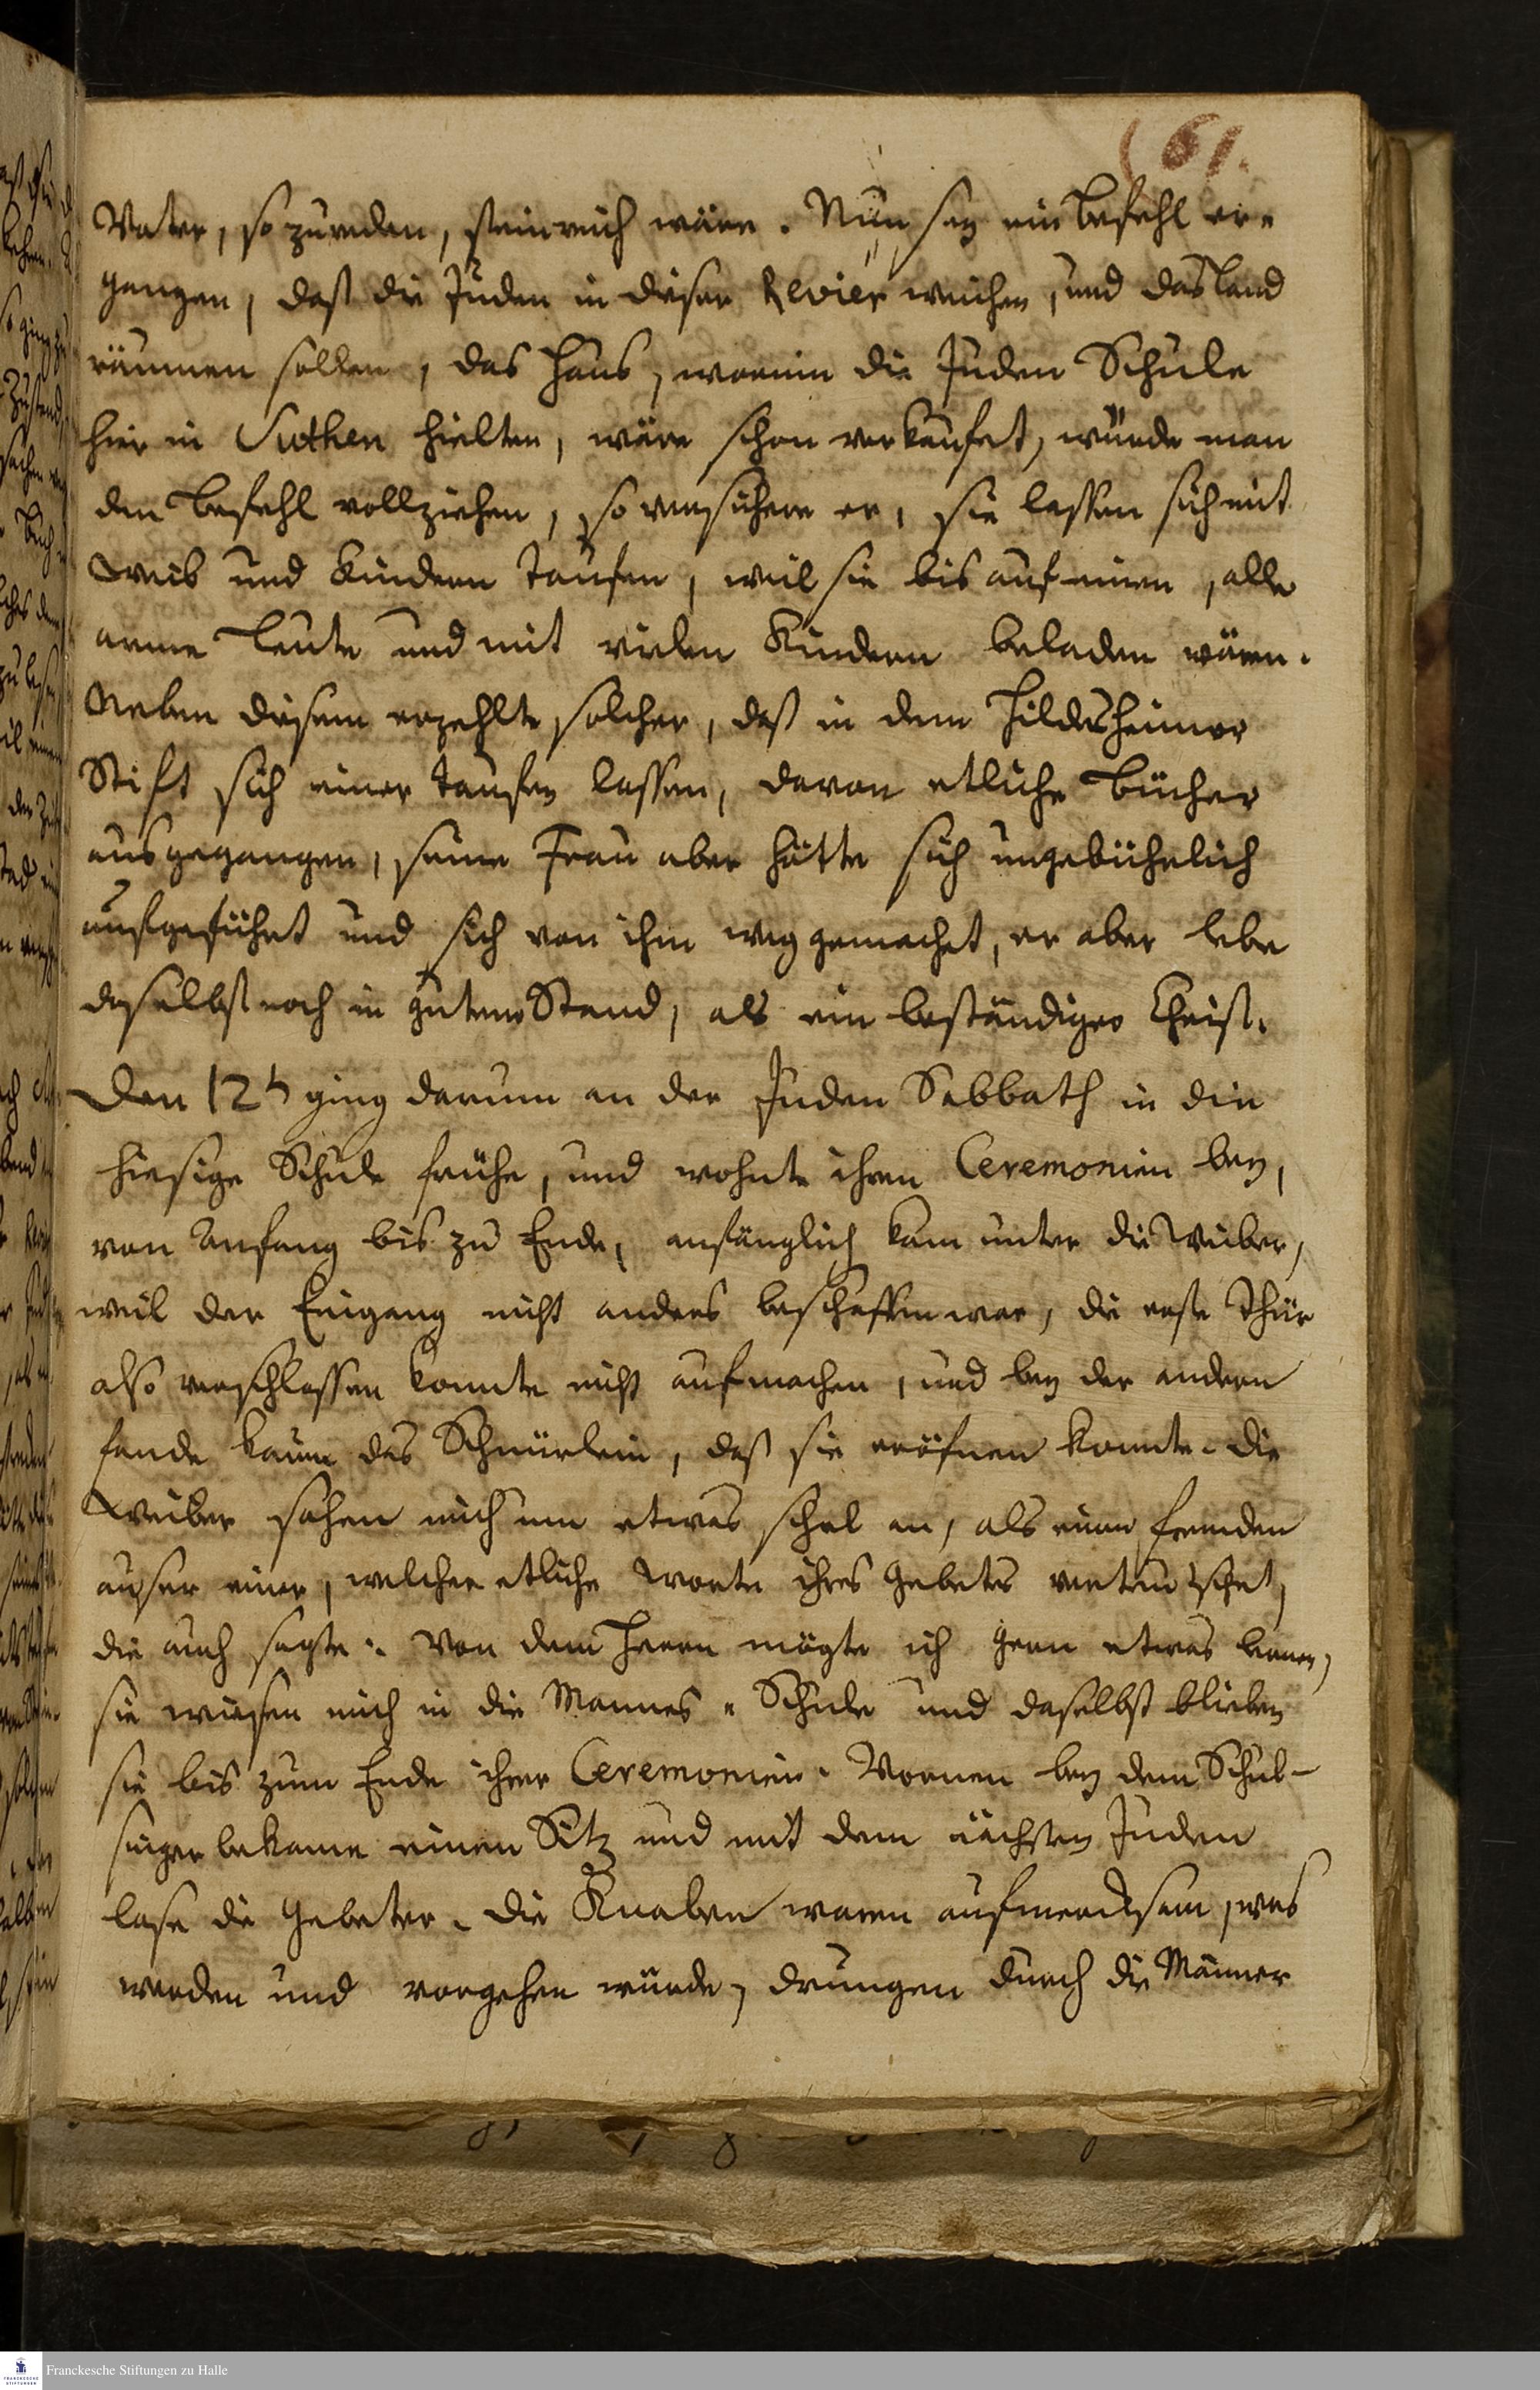 (61.
Vater, so zureden, steinreich wäre. Nun sey ein Befehl er-
gangen, daß die Juden in dieser Revier weichen, und das Land
räumen sollen, das Hauß, worinn die Juden Schule
hier in hielten, wäre schon verkaufet, würde man
den Befehl vollziehen, so versichere er, sie lassen sich mit
Weib und Kindern taufen, weil sie bis auf einen, alle
arme Leute und mit vielen Kindern beladen wären.
Neben diesem erzehlte solcher, daß in dem Hildesheimer
Stift sich einer taufen lassen, davon etliche Bücher
ausgegangen, seine Frau aber hätte sich ungebührlich
aufgeführt und sich von ihm weg gemachet, er aber lebe
daselbst noch in gutem Stand, als ein beständiger Christ.
Den 12t ging darum an der Juden Sabbath in die
hiesige Schule frühe, und wohnte ihren Ceremonien bey,
von Anfang bis zu Ende, anfänglich kam unter die Weiber,
weil der Eingang nicht anders beschaffen war, die erste Thür
also verschlossen konnte nicht aufmachen, und bey der andern
fande kaum das Schnürlein, daß sie eröfnen konnte. Die
Weiber sahen mich um etwas schel an, als einen fremden
auser einer, welcher etliche Worte ihres Gebetes verteutschet,
die auch sagte: Von dem Herrn mögte ich gern etwas lernen,
sie wiesen mich in die Mannes-Schule und daselbst blieben
sie bis zum Ende ihrer Ceremonien. Vornen bey dem Schul-
singer bekame einen Sitz und mit dem nächsten Juden
lase die Gebeter. Die Knaben waren aufmercksam, was
werden und vorgehen würde, drungen durch die Männer
Franckesche Stiftungen zu Halle